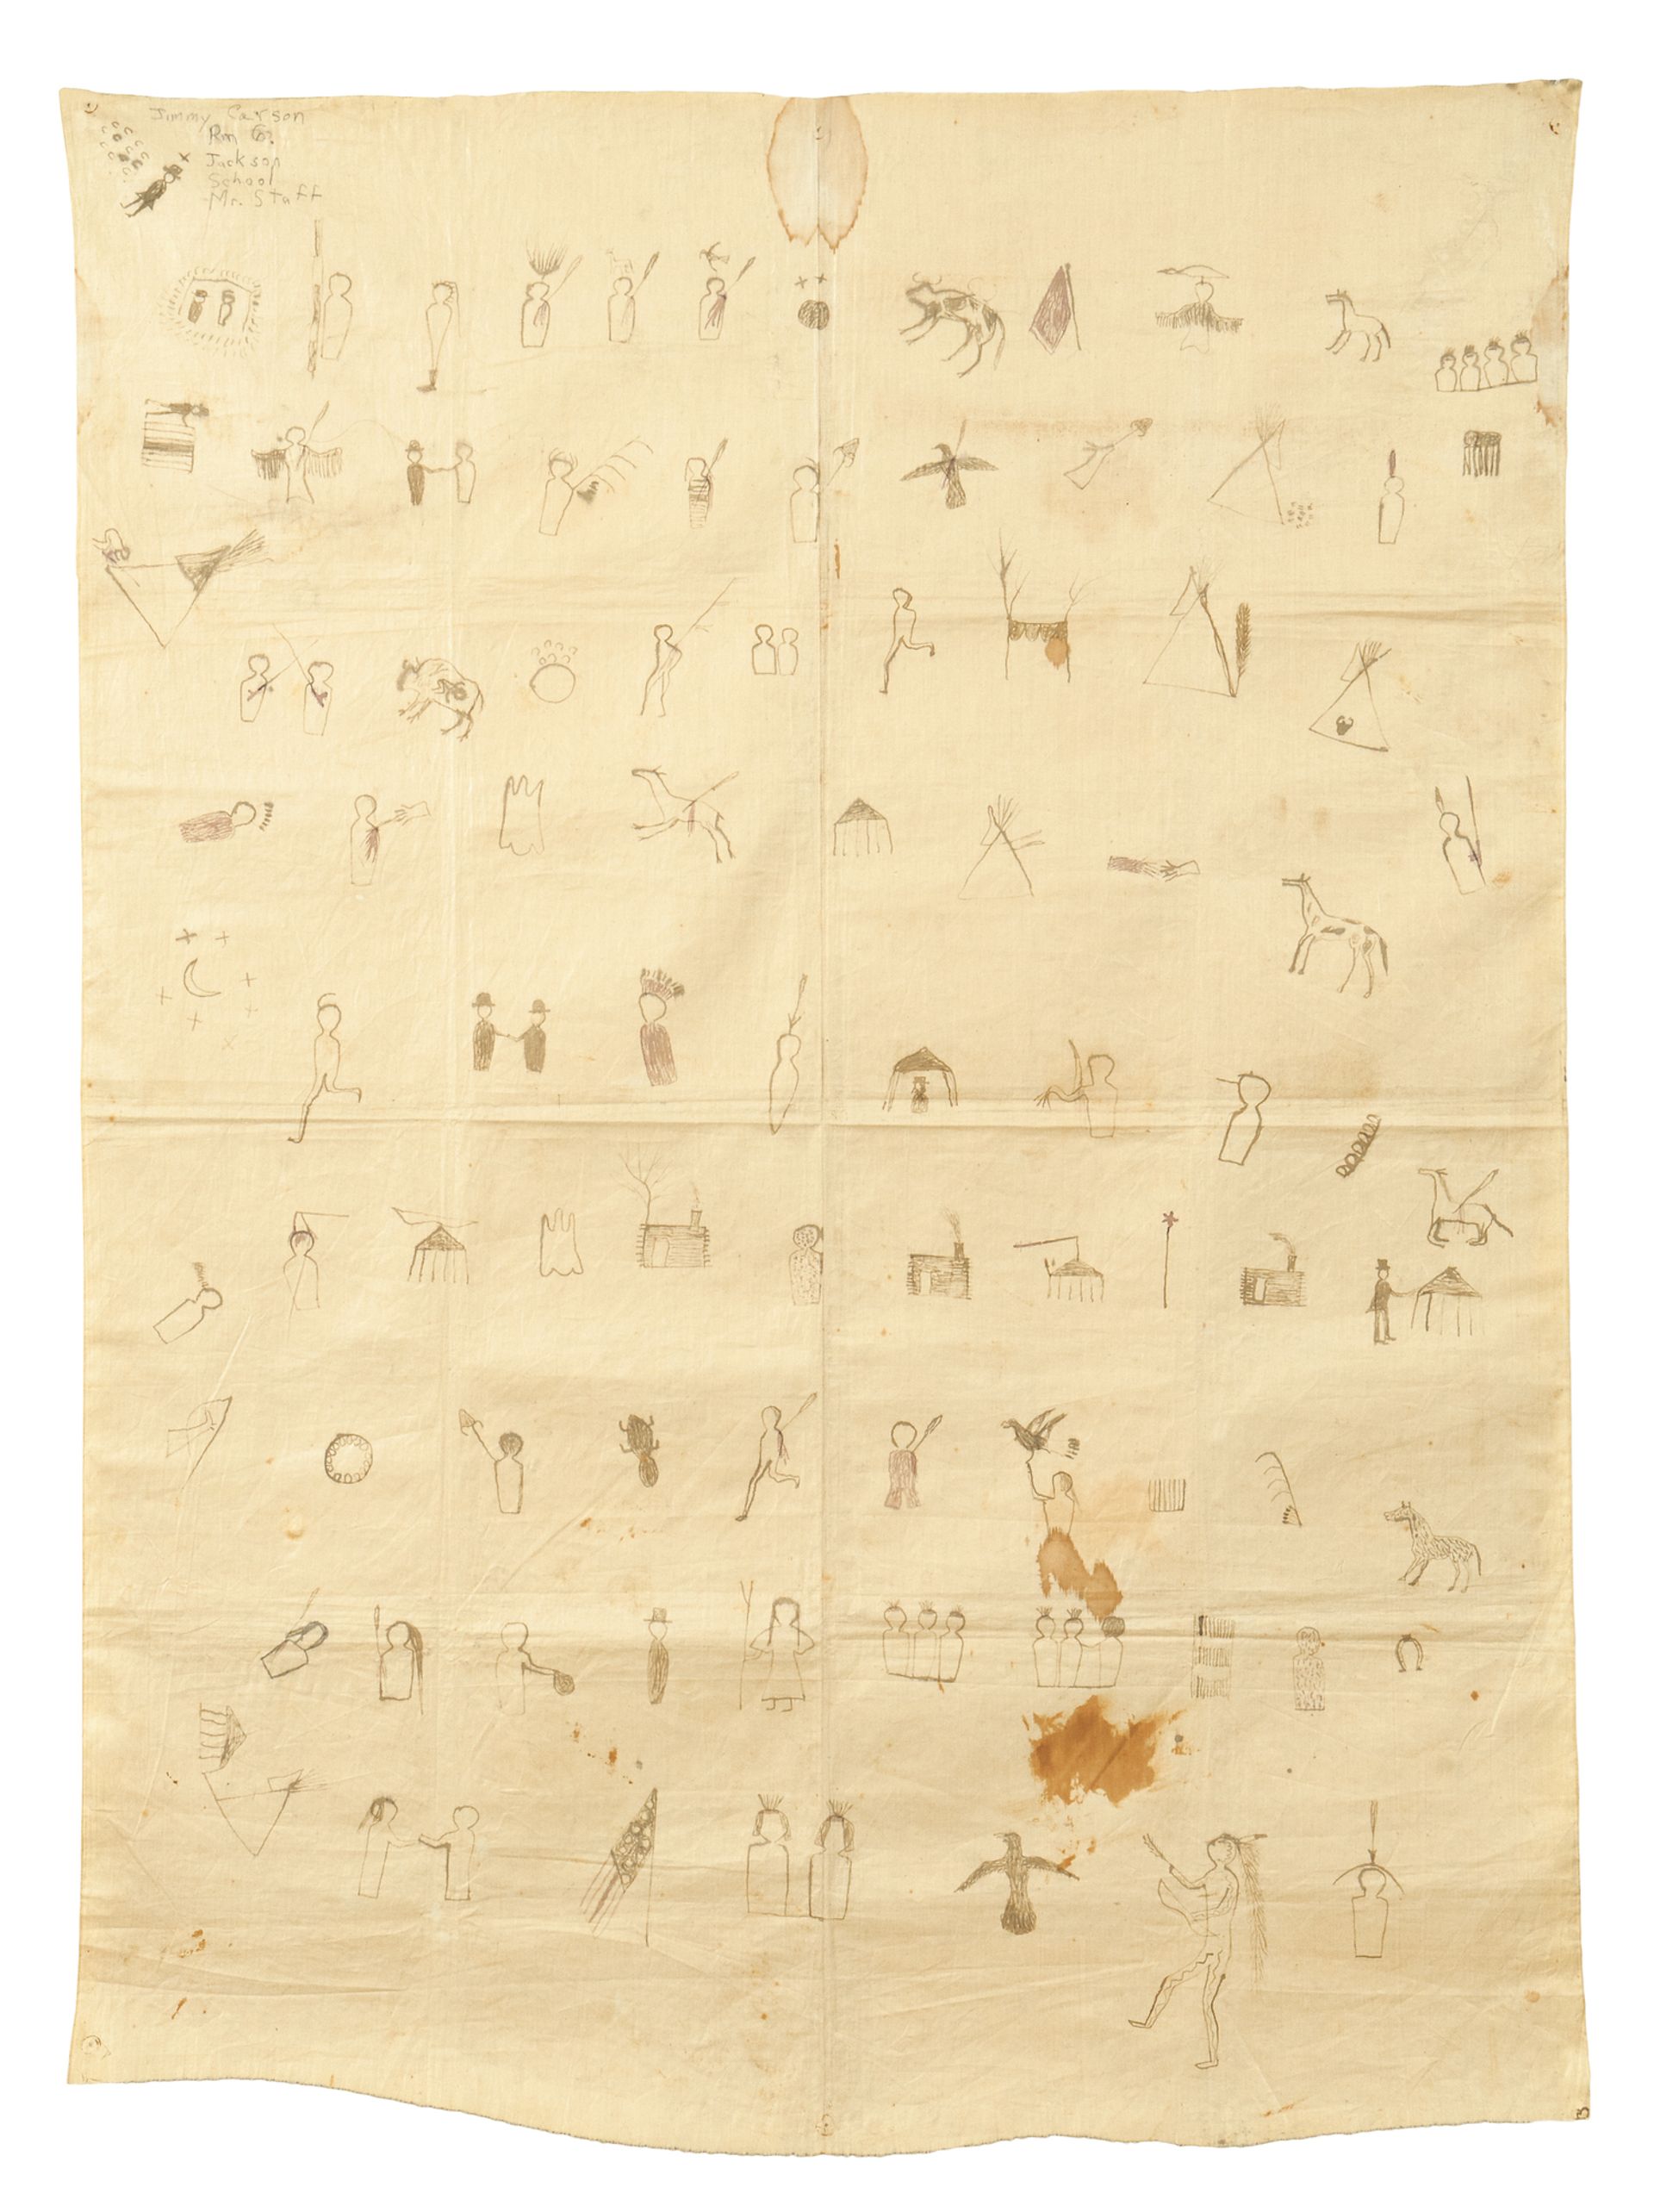 Jimmy Carson
Rm 6.
Jackson
School
Mr. Staff